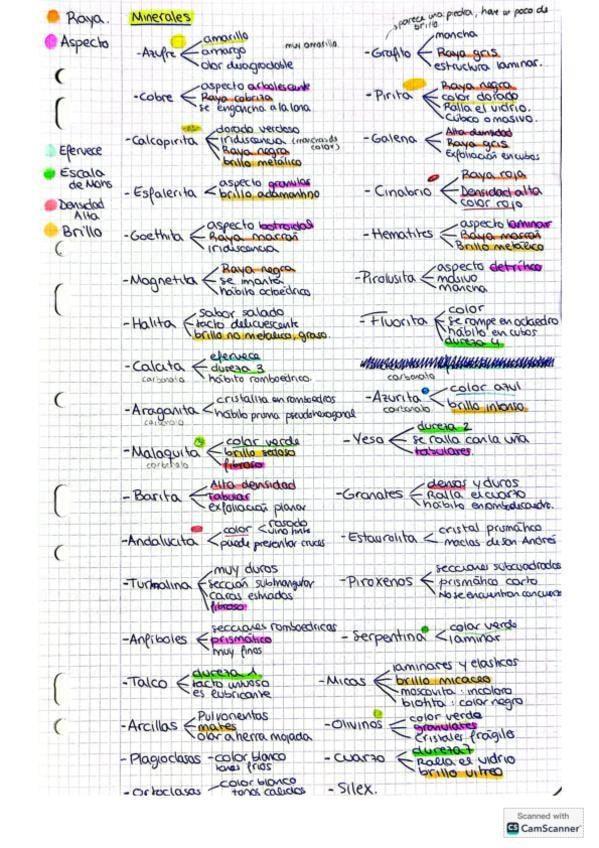 Raya.
Aspecto
Efervece
Escala de Mohs
Densidad Alta
Brillo
Minerales
-Azufre
amarillo
amargo
olor desagradable
muy amarillo
-Cobre
aspecto arborescente
Raya cobriza
se engancha a la lona
-Calcopirita
dorado verdoso
iridiscencia
Raya negra
brillo metálico
-Esfalerita
aspecto granular
brillo adamantino
-Goethita
aspecto botroidal
Raya marrón
iridiscencia
-Magnetita
Raya negra
se imanta
hábito octaédrico
-Halita
sabor salado
tacto delicuescente
brillo no metálico, graso.
-Calcita
carbonato
efervece
dureza 3
hábito romboédrico.
-Aragonita
carbonato
cristaliza en romboedros
hábito prisma pseudohexagonal
-Malaquita
carbonato
color verde
brillo sedoso
fibroso
-Barita
Alta densidad
tabular
exfoliación planar
-Andalucita
color
rosado
vino tinto
puede presentar cruces
-Turmalina
muy duros
sección subtriangular
caras estriadas
fibroso
-Anfiboles
secciones romboédricas
prismático
muy finos
-Talco
dureza 1
tacto untuoso
es lubricante
-Arcillas
Pulvorientas
mates
olor a tierra mojada
-Plagioclasas
-color blanco
tonos fríos
-Ortoclasas
color blanco
tonos cálidos
parece una piedra, hace un poco de brillo
-Grafito
mancha
Raya gris
estructura laminar.
-Pirita
Raya negra
color dorado
Ralla el vidrio.
Cúbico o masivo.
-Galena
Alta densidad
Raya gris
Exfoliación en cubos
-Cinabrio
Raya roja
Densidad alta
color rojo
-Hematites
aspecto laminar
Raya marrón
Brillo metálico
-Pirolusita
aspecto detrítico
masivo
mancha
-Fluorita
color
se rompe en octaedro
hábito en cubos
dureza 4
-Azurita
carbonato
carbonato
color azul
brillo intenso
-Yeso
dureza 2
se ralla con la uña
tabulares.
-Granates
densos y duros
Ralla el cuarzo
hábito en rombdocaedro.
-Estaurolita
cristal prismático
maclas de San Andrés
-Piroxenos
secciones subcuadradas
prismático corto
No se encuentran con cuarzo
-Serpentina
color verde
laminar
-Micas
laminares y elásticos
brillo micaceo
moscovita: incoloro
biotita: color negro
-Olivinos
color verde
granulares
Cristales frágiles
-Cuarzo
dureza 7
Ralla el vidrio
brillo vítreo
-Sílex.
Scanned with
CS CamScanner